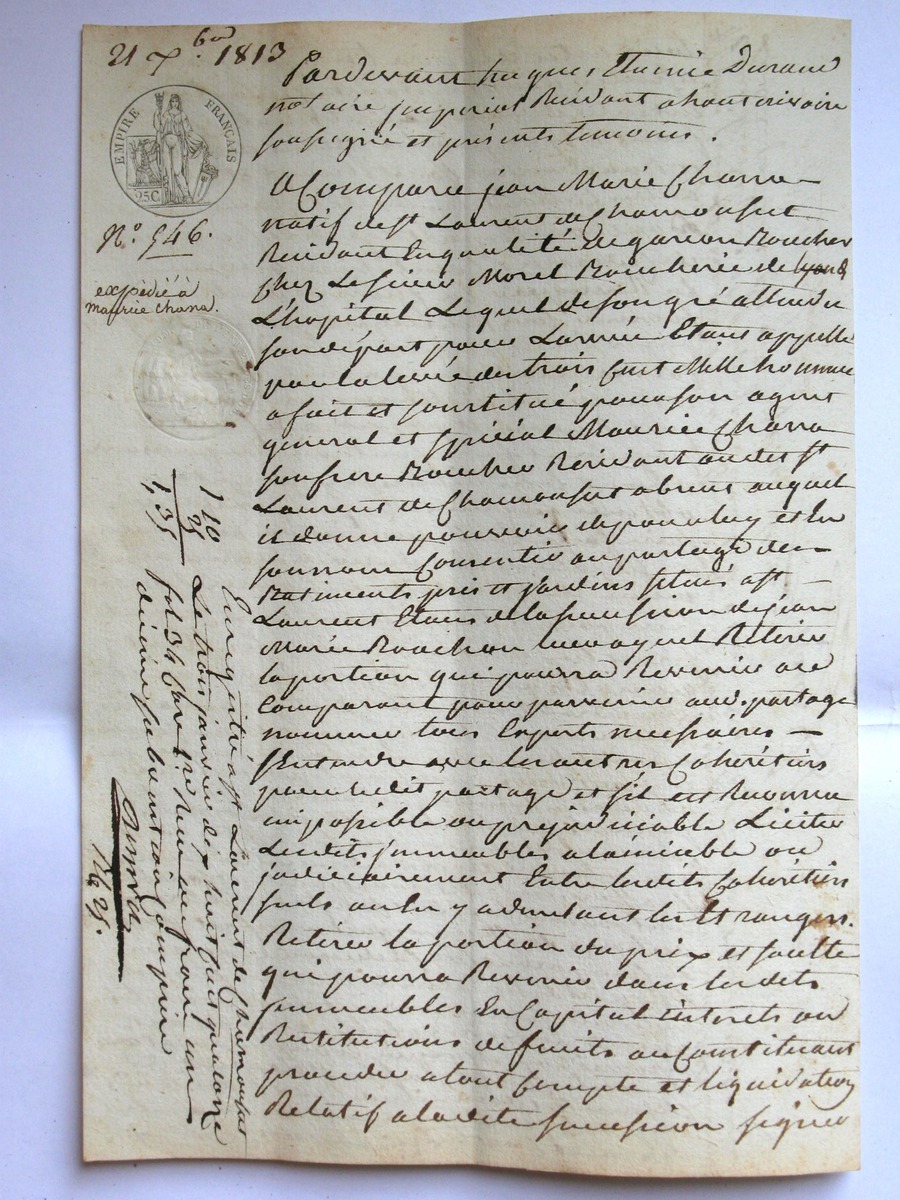 21 Xbre. 1813
EMPIRE FRANÇAIS
25C.
N.º 546.
expédié à
maurice Chana.
Pardevant hugues Etienne Durand
notaire imperial Residant a haut rivoire
soussigné et présents temoins.
A Comparu jean Marie Charra
natif de St Laurent de Chamousset
Residant En qualité de garcon Boucher
chez Le sieur Morel Boucherie de
L'hopital Lequel de son gré attendu
son départ pour L'armée Etant appellé
par la levée des trois Cent Mille hommes
a fait et constitué pour son agent
général et spécial Maurice Charra
son frere Boucher Residant audit St
Laurent de Chamousset absent auquel
il donne pouvoir de pour luy et En
son nom Consentir au partage des
Batiments prés et jardins situés a St
Laurent Etant de la succession de jean
Marie Bouchon Retirer
la portion qui pourra Revenir au
Comparant pour parvenir aud. partage
nommer tous Experts necessaires
s'Entendre avec les autres Cohéritiers
pour ledit partage et s'il est Reconnu
impossible ou préjudiciable Liciter
Lesdits immeubles a l'amiable ou
judiciairement Entre lesdits Cohéritiers
seuls ou En y admettant les Etrangers.
Retirer la portion du prix et soulte
qui pourra Revenir dans lesdits
immeubles En Capital interets ou
Restitutions de fruits au Constituant
proceder a tout Compte et liquidation
Relatif a ladite succession signer
1 10
25
1,35
Enregistré a St Laurent de chamousset
Le trois janvier dix huit cent quatorze
fol 34 Reçu un franc un
decime subvention comprise
R 25.